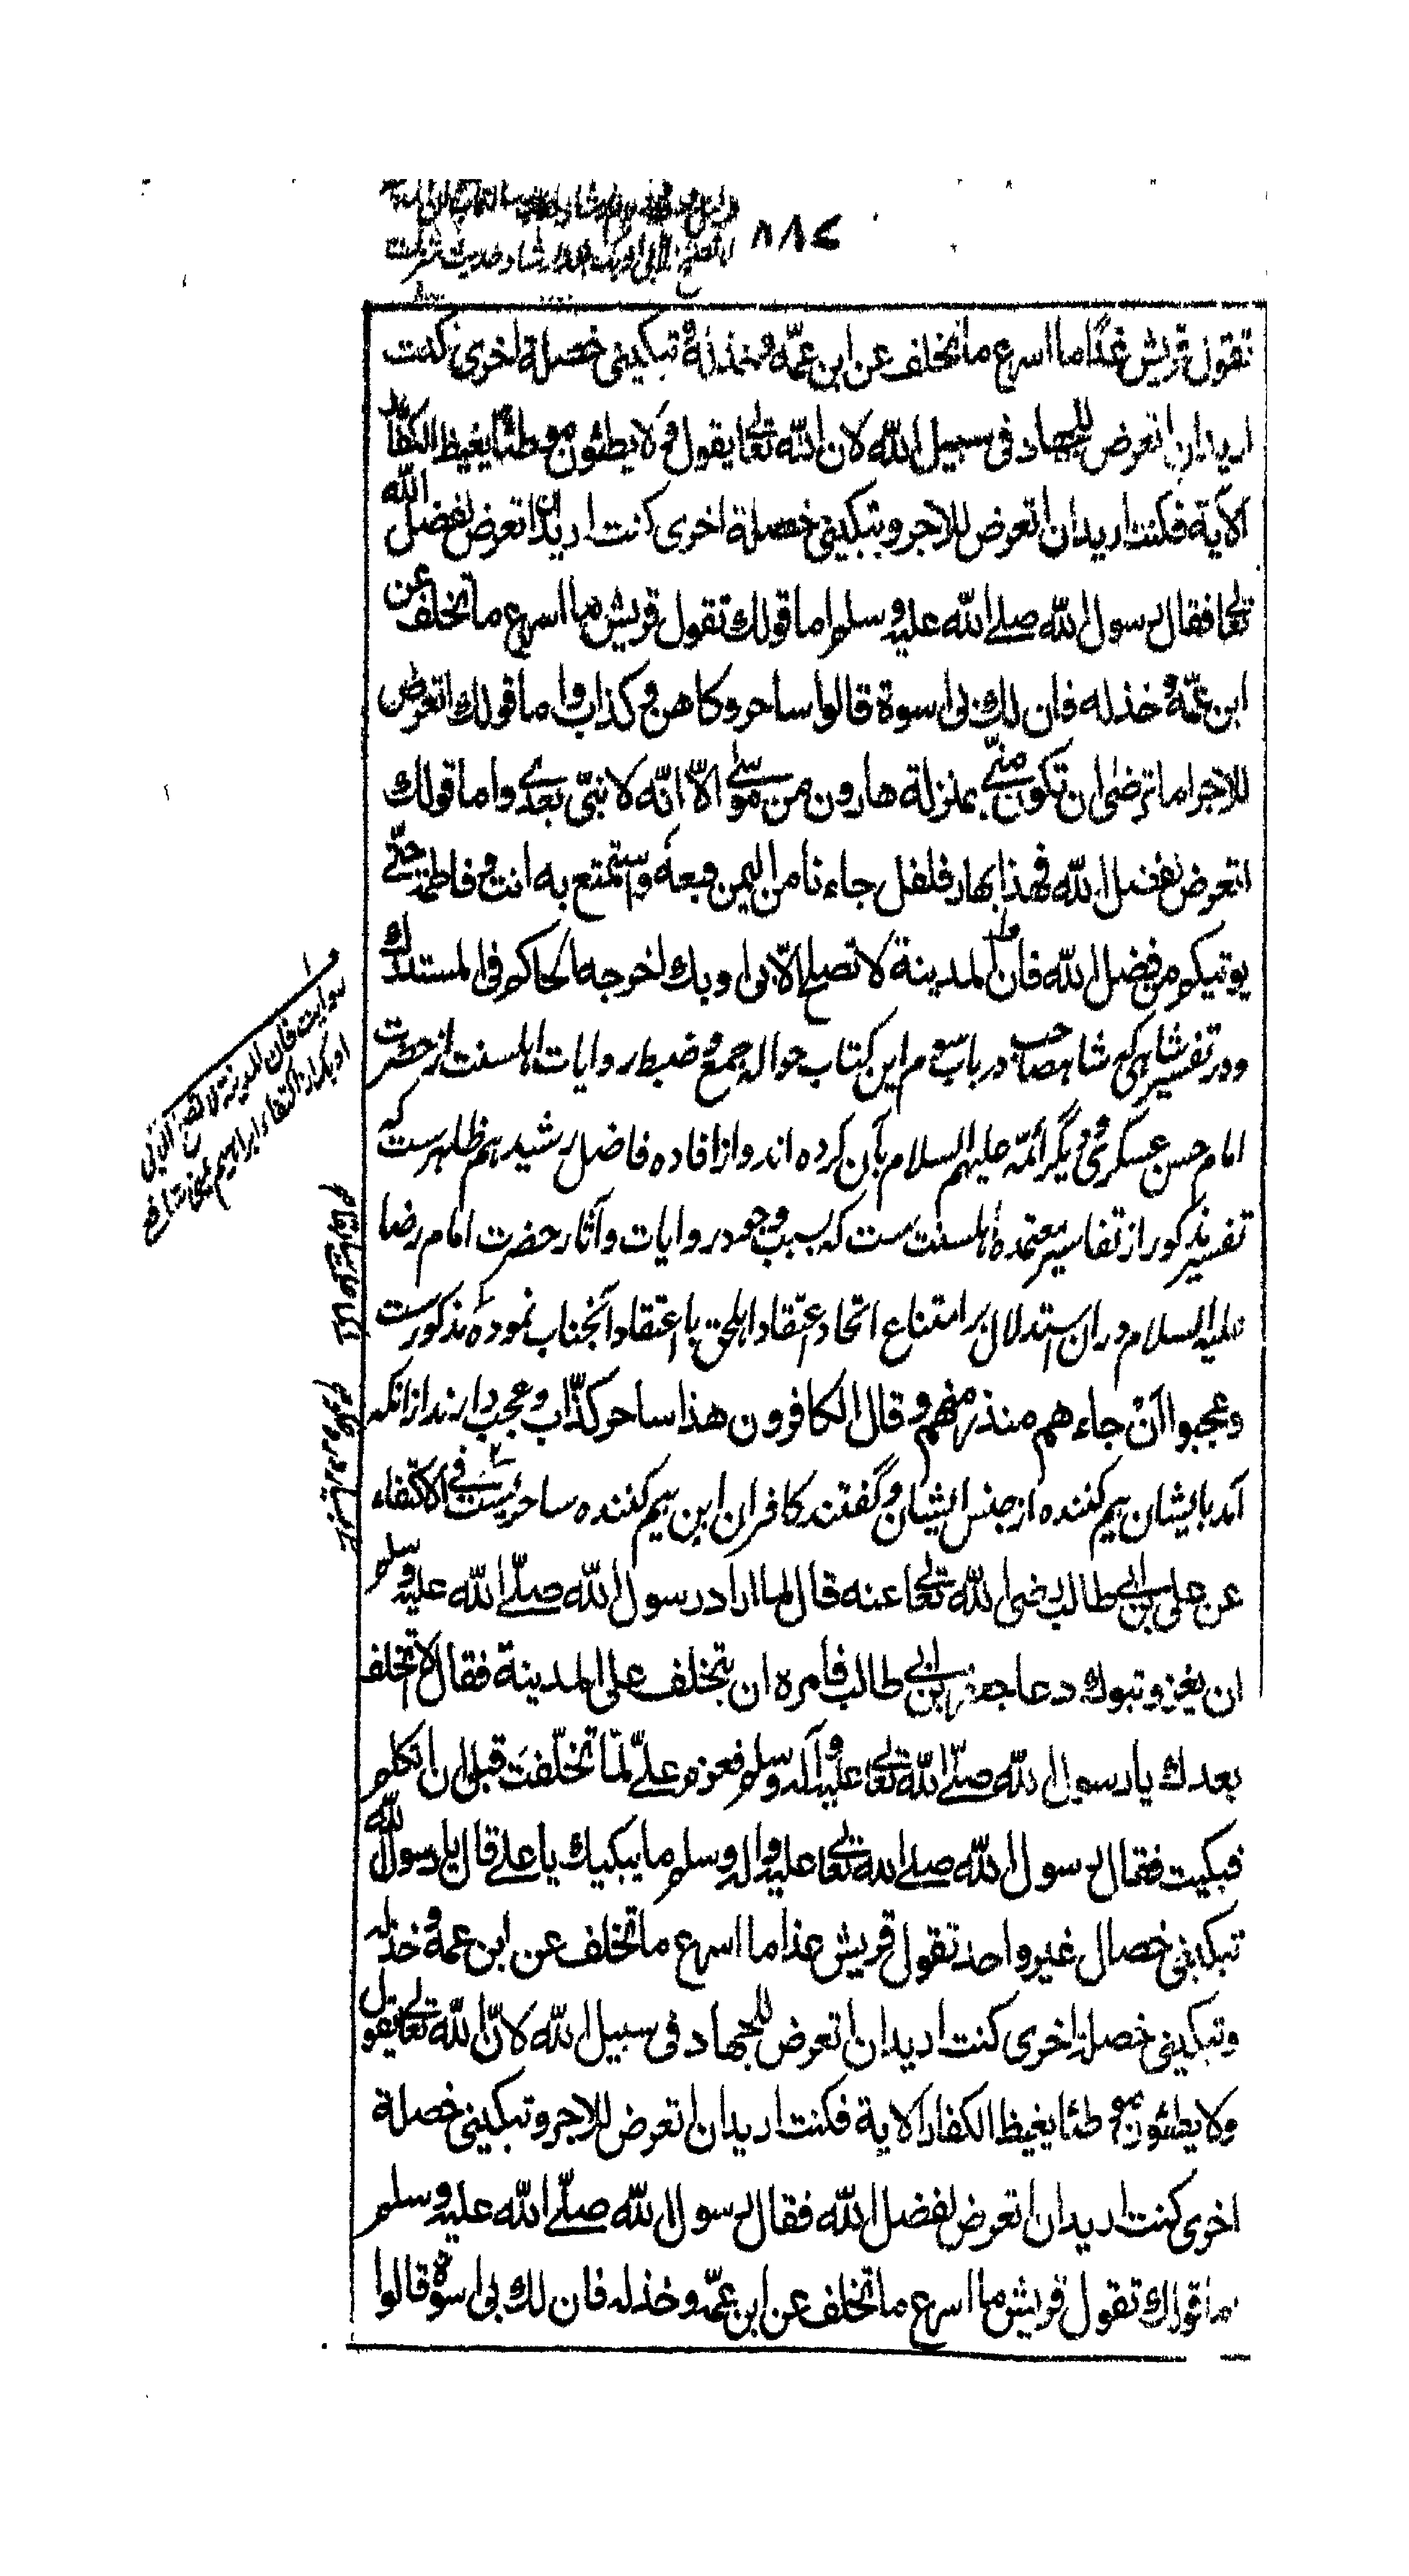 ۸۸۷
تقول قريش غدًا ما اسرع ما تخلف عن ابن عمّه وخذله وتبكينى خصلة اخرى كنت
اريد ان اتعرض للجهاد فى سبيل الله لان الله تعالى يقول ولا يطئون موطئا يغيظ الكفّار
الآية فكنت اريد ان اتعرض للاجر وتبكينى خصلة اخرى كنت اريد ان اتعرض لفضل الله
تعالى فقال رسول الله صلے الله عليه وسلم اما قولك تقول قريش ما اسرع ما تخلف عن
ابن عمّه وخذله فان لك بى اسوة قالوا ساحر وكاهن وكذاب واما قولك اتعرض
للاجر اما ترضى ان تكون منّے بمنزلة هارون من موسے الّا انّه لا نبىّ بعدے واما قولك
اتعرض لفضل الله فهذا بهار فلفل جاءنا من اليمن فبعه واستمتع به انت وفاطمة حتّے
يوتيكم من فضل الله فان المدينة لا تصلح الّا بى او بك اخرجه الحاكم فى المستدرك
ودر تفسير شاهى كه شاهصاحب در باب سوم اين كتاب حواله جمع و ضبط روايات اهلسنت از حضرت
امام حسن عسكرى و ديگر ائمّه عليهم السلام بآن كرده اند و از افاده فاضل رشيد هم ظاهرست كه
تفسير مذكور از تفاسير معتمدهٔ اهلسنت ست كه بسبب وجود روايات و آثار حضرت امام رضا
عليه السلام دران استدلال بر امتناع اتحاد اعتقاد اهلحق با اعتقاد آنجناب نموده مذكورست
وعجبوا اَنْ جاءهم منذر منهم وقال الكافرون هذا ساحر كذّاب و عجب دارند از انكه
آمد بايشان بيم كننده از جنس ايشان و گفتند كافران اين بيم كننده ساحرست فے الاكتفاء
عن على بن ابى طالب رضى الله تعالى عنه قال لما اراد رسول الله صلّے الله عليه وسلم
ان يغزو تبوك دعا جعفر بن ابى طالب فأمره ان يتخلف على المدينة فقال لا اتخلف
بعدك يا رسول الله صلّے الله تعالى عليه وآله وسلم فعزم علىّ لمّا تخلّفتَ قبل ان اتكلم
فبكيت فقال رسول الله صلے الله تعالى عليه واله وسلم ما يبكيك يا علے قال يا رسول الله
تبكينى خصال غير واحد تقول قريش غذا ما اسرع ما تخلف عن ابن عمه وخذله
وتبكينى خصلة اخرى كنت اريد ان اتعرض للجهاد فى سبيل الله لانّ الله تعالى يقول
ولا يطئون موطئا يغيظ الكفار الاية فكنت اريد ان اتعرض للاجر وتبكينى خصلة
اخرى كنت اريد ان اتعرض لفضل الله فقال رسول الله صلّے الله عليه وسلم
اما قولك تقول قريش ما اسرع ما تخلف عن ابن عمّه وخذله فان لك بى اسوة قالوا
روايت فان المدينة لا تصلح الا بى
او بك از اكتفاء ابراهيم